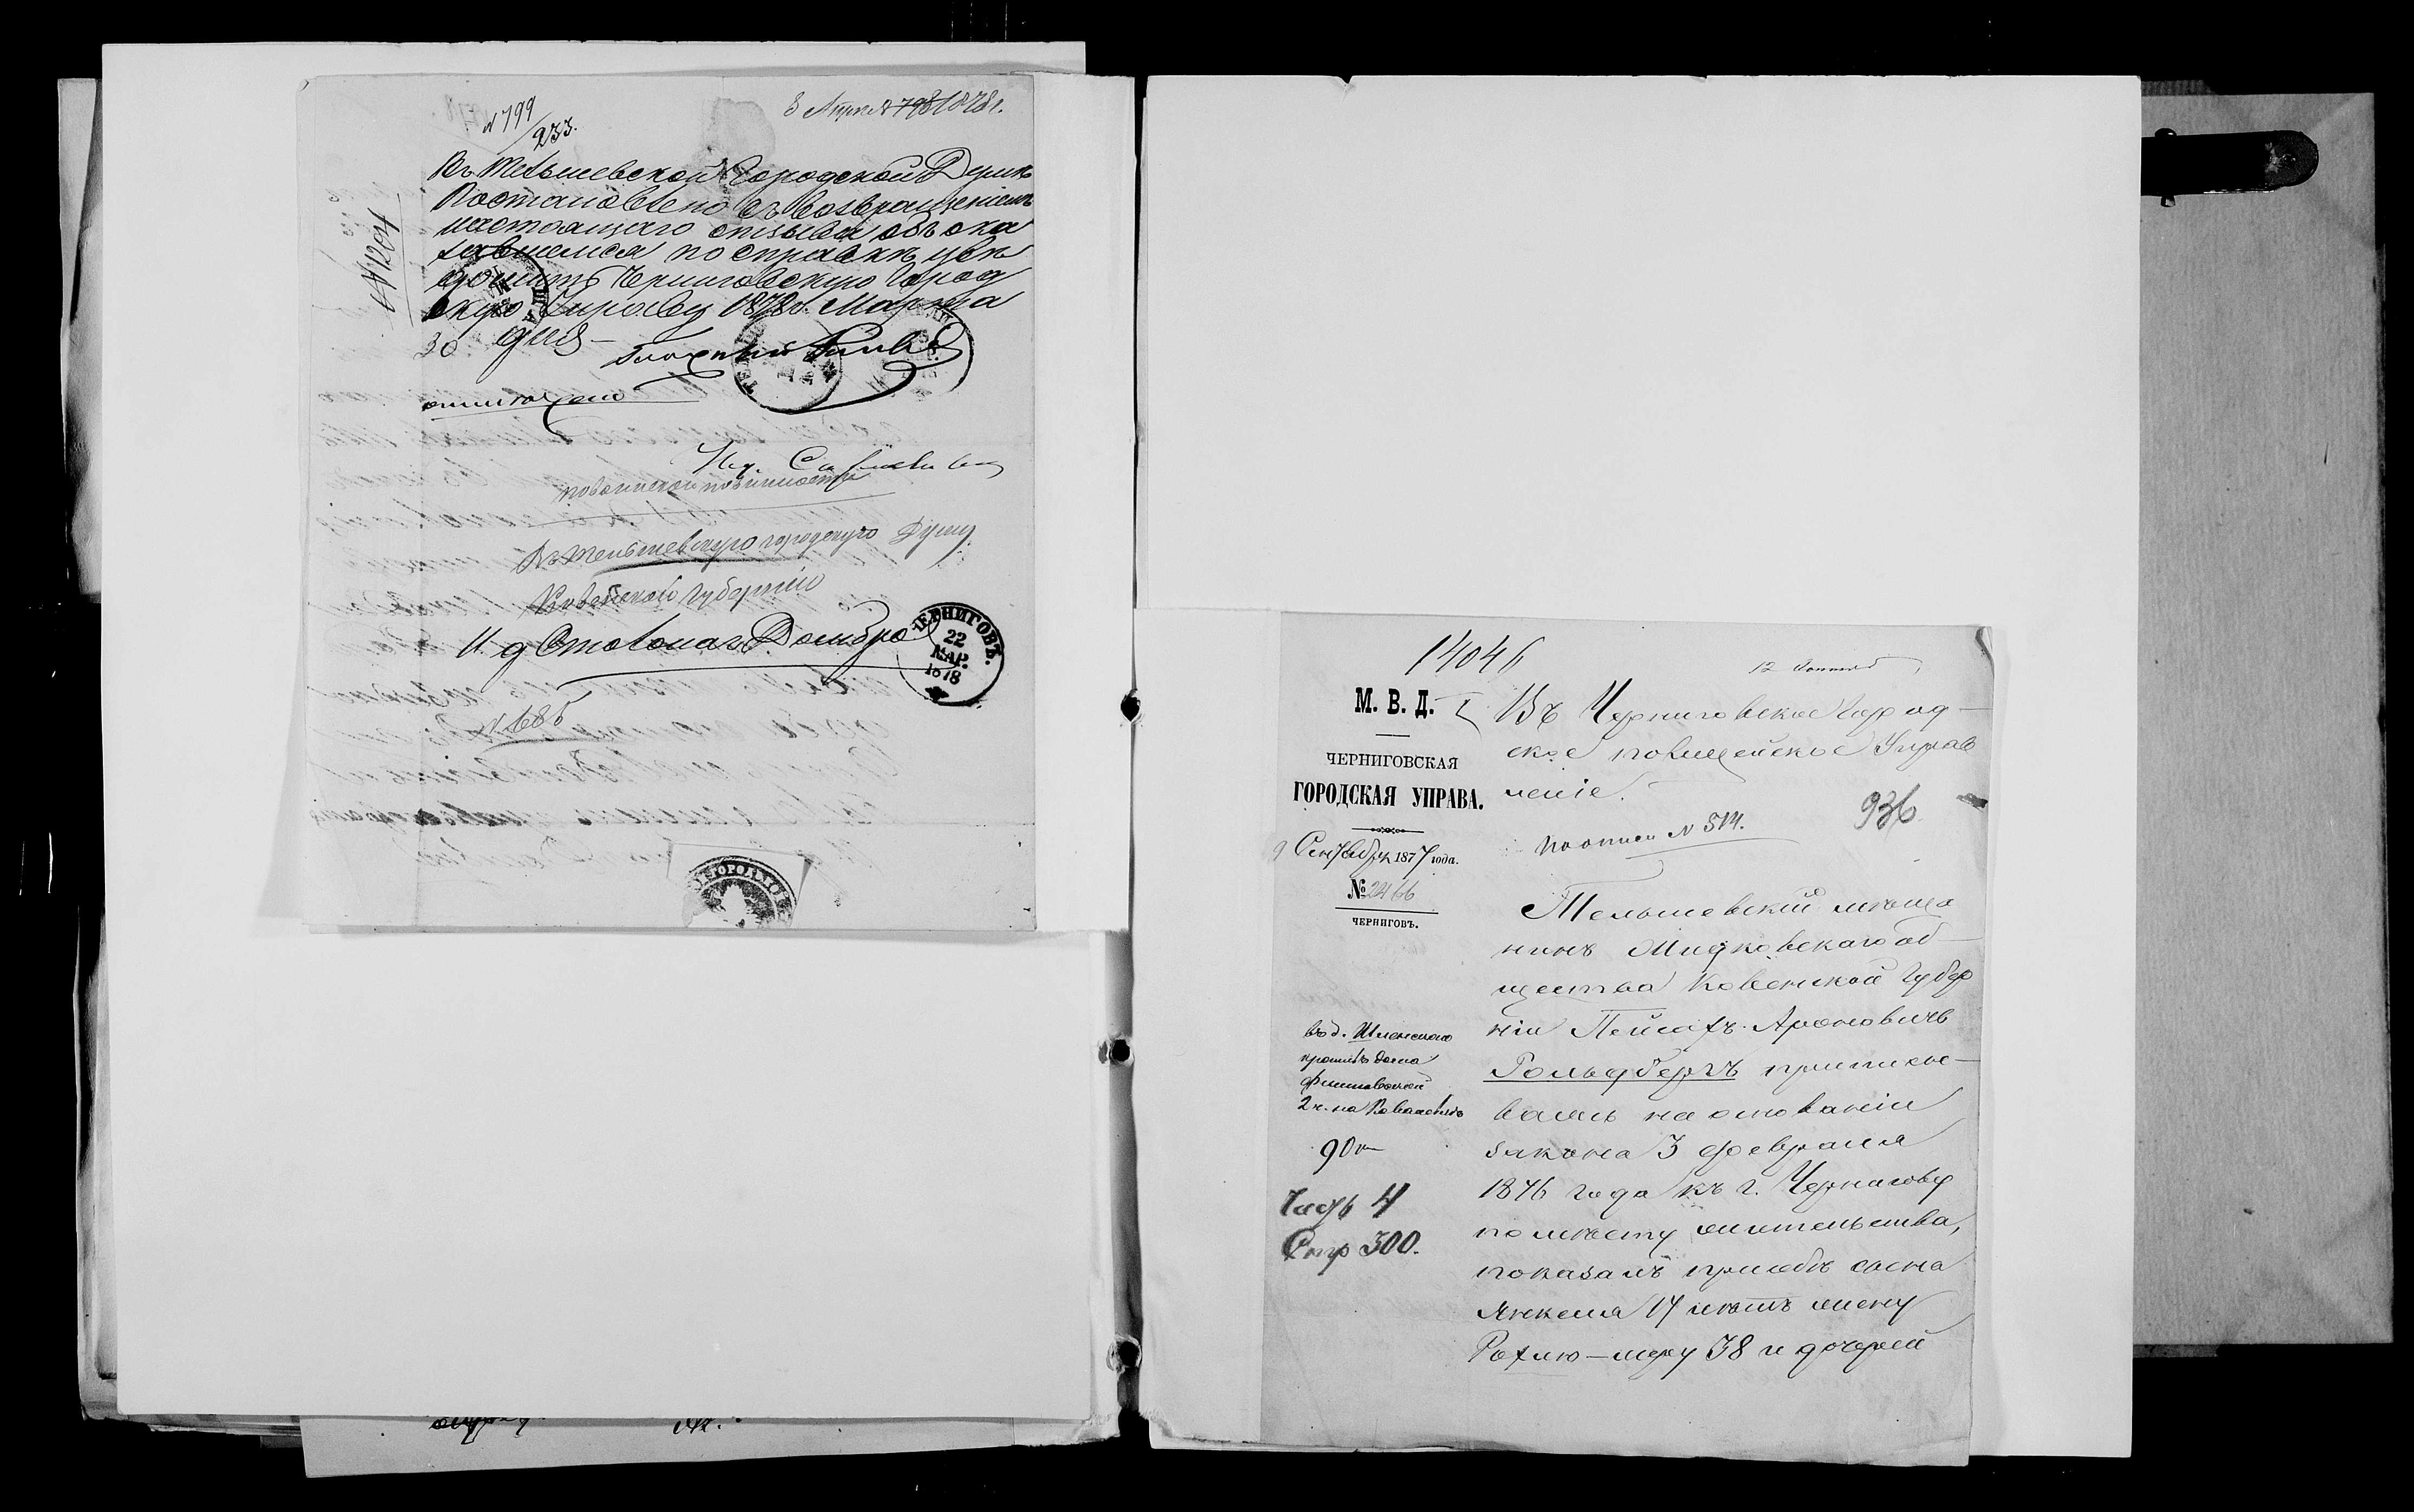 N 799
/233.
3 Апреля 1878 г.
N 1204
Въ Тельшевской Городской Думѣ
Постановлено съ возвращеніемъ
настоящаго отзыва объ ока
завшемся по справкѣ увѣ
домить Черниговскую Город
скую Управу 1878 г. Марта
30 дня
по воинской повинности
Въ Тельшевскую городскую Думу
Ковенской Губерніи
ЧЕРНИГОВЪ.
22
МАР.
1878
И. д Столонач
N 685
14046
М. В. Д.
ЧЕРНИГОВСКАЯ
ГОРОДСКАЯ УПРАВА.
9 Сентября 1877 года.
№ 2466
ЧЕРНИГОВЪ.
Въ Черниговское Город-
ское полицейское Управ
леніе.
936
По описи N 514.
Тельшевскій мѣща
нинъ Мидковскаго об-
щества Ковенской Губер
ніи Пейсахъ Ароновичъ
Гольдбергъ приписы-
ваясь на основаніи
закона 3 февраля
1876 года къ г. Чернигову
по мѣсту жительства,
показалъ при себѣ сына
Янкеля 17 лѣтъ жену
Рохлю-Меру 38 и дочерей
въ д.
противъ дома
2 ч. на Ковалевкѣ
90 к
Часть 4
Стр 300.